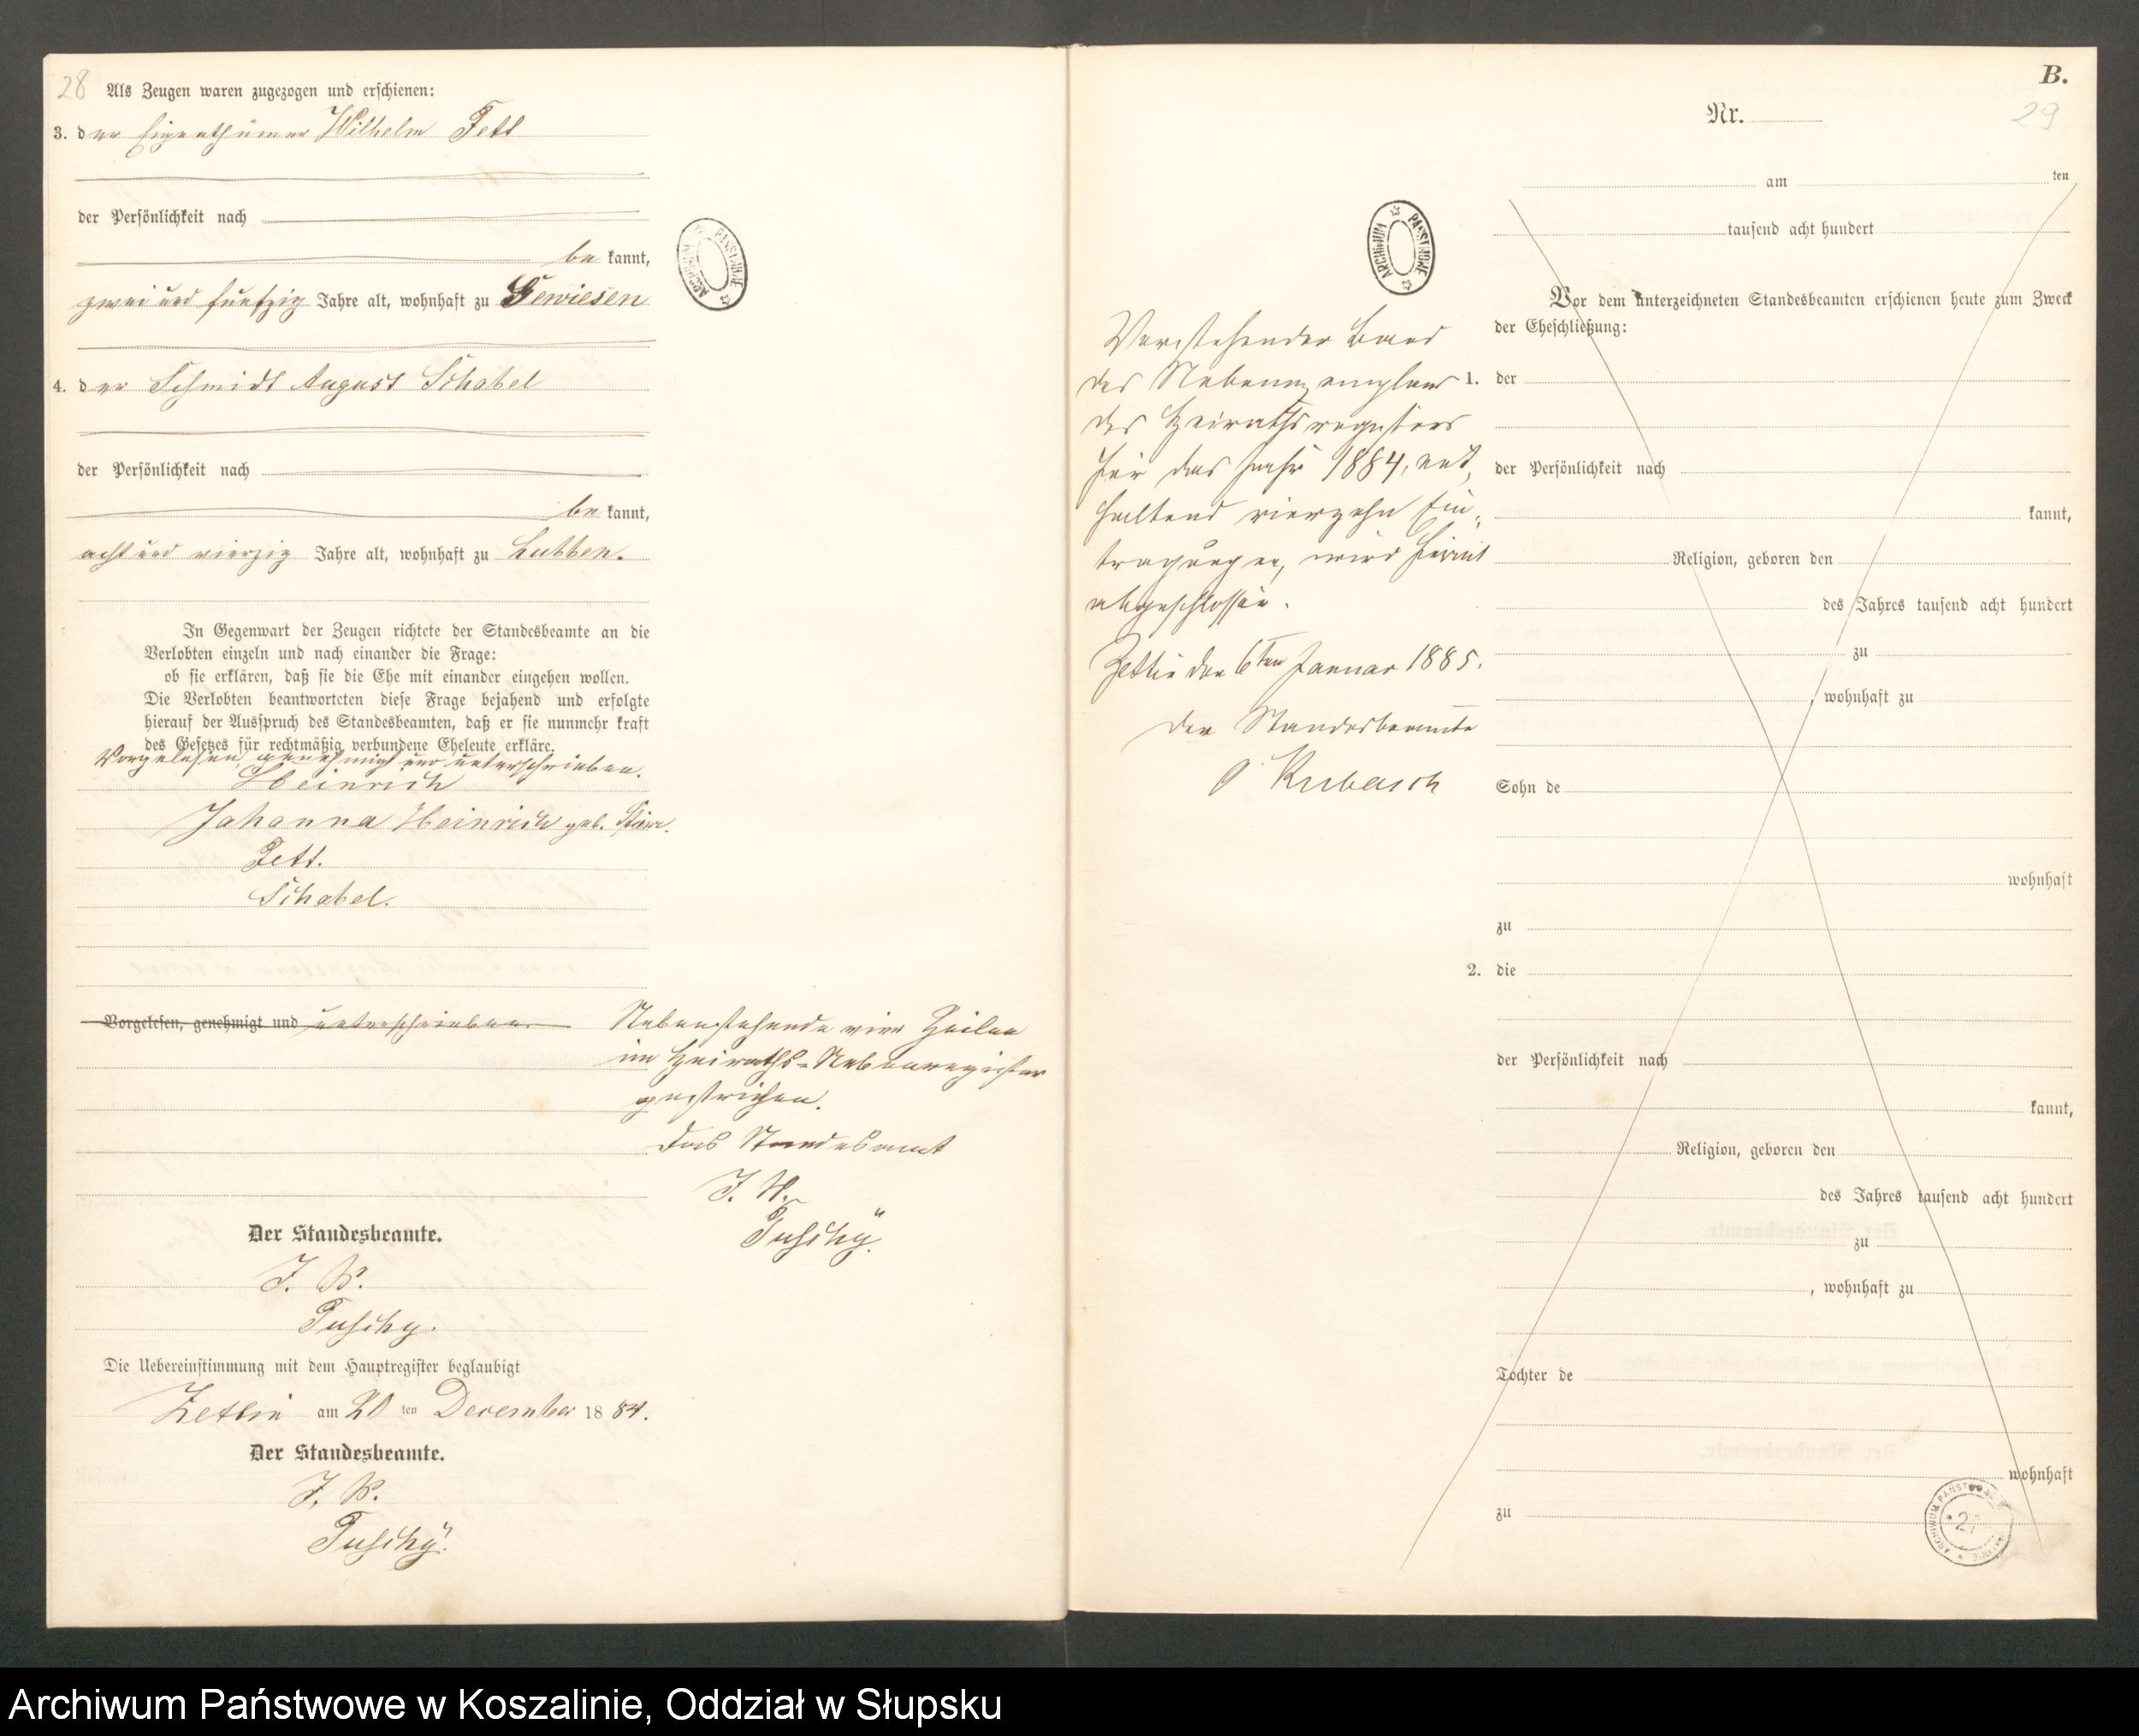 28
Als Zeugen waren zugezogen und erschienen:
3. der Eigenthümer Wilhelm Tett
der Persönlichkeit nach
be kannt,
zwei und funfzig Jahre alt, wohnhaft zu Gewiesen
4. der Schmidt August Schabel
der Persönlichkeit nach
be kannt,
acht und vierzig Jahre alt, wohnhaft zu Lubben.
In Gegenwart der Zeugen richtete der Standesbeamte an die
Verlobten einzeln und nach einander die Frage:
ob sie erklären, daß sie die Ehe mit einander eingehen wollen.
Die Verlobten beantworteten diese Frage bejahend und erfolgte
hierauf der Ausspruch des Standesbeamten, daß er sie nunmehr kraft
des Gesetzes für rechtmäßig verbundene Eheleute erkläre.
Vorgelesen, genehmigt und unterschrieben.
Heinrich
Johanna Heinrich geb.
Tett.
Schabel.
Vorgelesen, genehmigt und unterschrieben
Nebenstehende vier Zeilen
im Heiraths-Nebenregister
gestrichen.
Das Standesamt
J. V.
Tuschy.
Der Standesbeamte.
J. V.
Tuschy.
Die Uebereinstimmung mit dem Hauptregister beglaubigt
Zettin am 20 ten December 18 84.
Der Standesbeamte.
J. V.
Tuschy.
ARCHIWUM PAŃSTWOWE
B.
29
Nr.
am ten
tausend acht hundert
ARCHIWUM PAŃSTWOWE
Vorstehender Band
des Nebenexemplars
des Heirathsregisters
für das Jahr 1884, ent,
haltend vierzehn Ein,
tragungen, wird hiermit
abgeschlossen.
Zettin den 6ten Januar 1885.
Der Standesbeamte
Kubasch
Vor dem unterzeichneten Standesbeamten erschienen heute zum Zweck
der Eheschließung:
1. der
der Persönlichkeit nach
kannt,
Religion, geboren den
des Jahres tausend acht hundert
zu
, wohnhaft zu
Sohn de
wohnhaft
zu
2. die
der Persönlichkeit nach
kannt,
Religion, geboren den
des Jahres tausend acht hundert
zu
, wohnhaft zu
Tochter de
wohnhaft
zu
Archiwum Państwowe w Koszalinie, Oddział w Słupsku